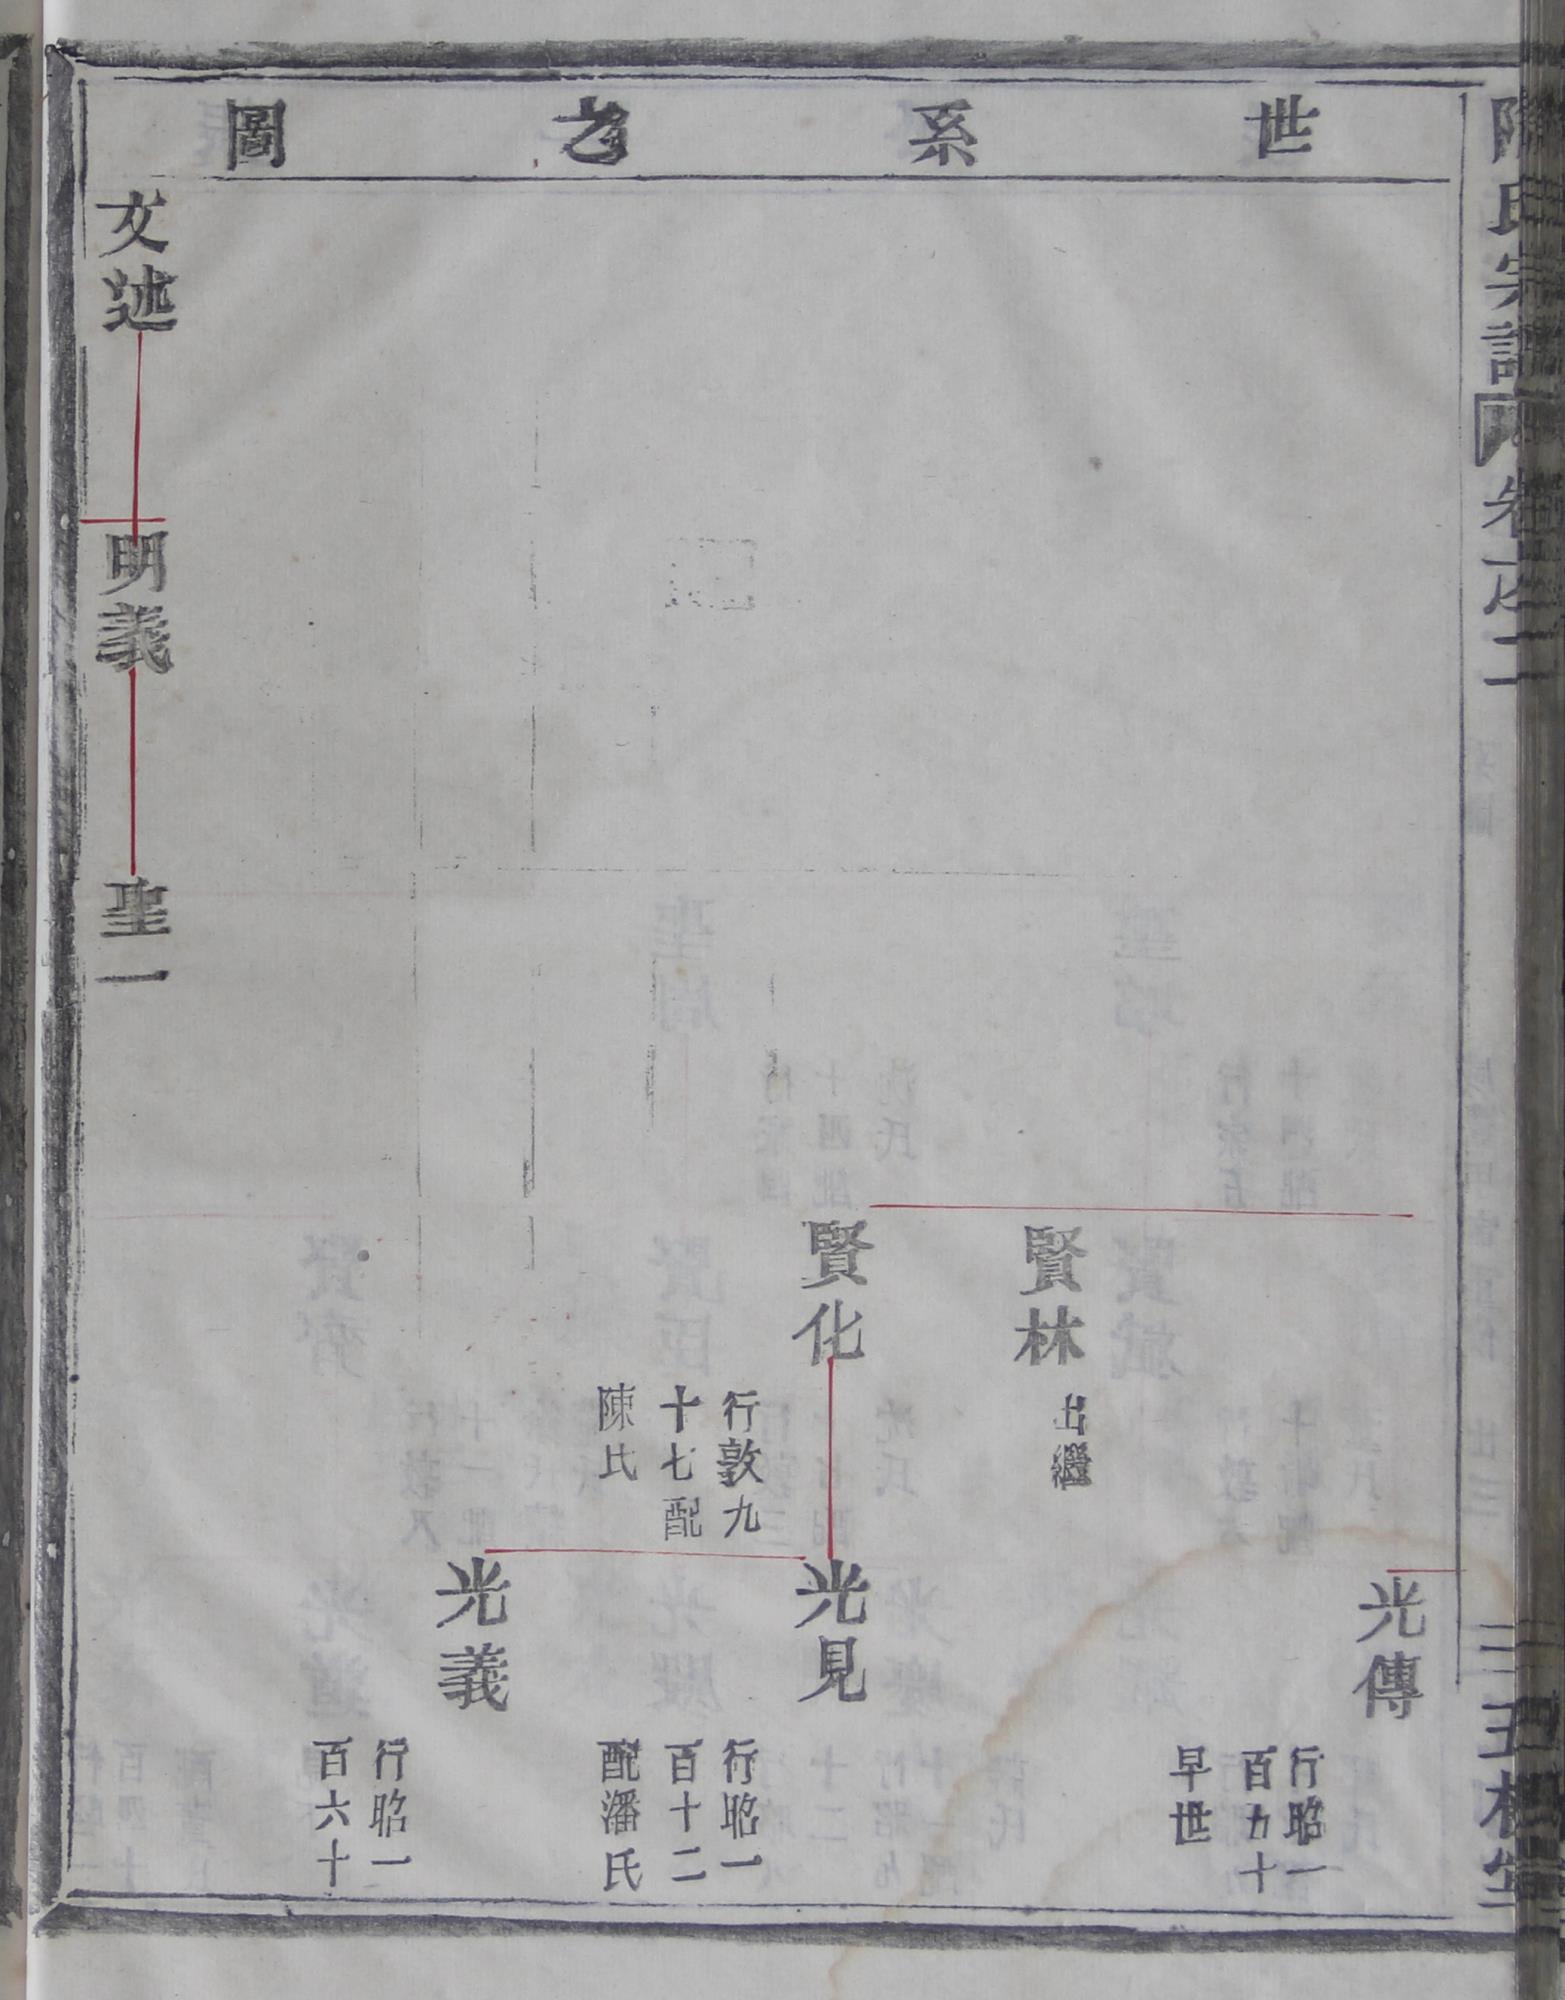 世系之圖
氏宗譜
卷之二
光傳
行昭一
百九十
早世
賢林
出繼
賢化
行敦九
十七配
陳氏
光見
行昭一
百十二
配潘氏
光義
行昭一
百六十
文述
明義
聖一